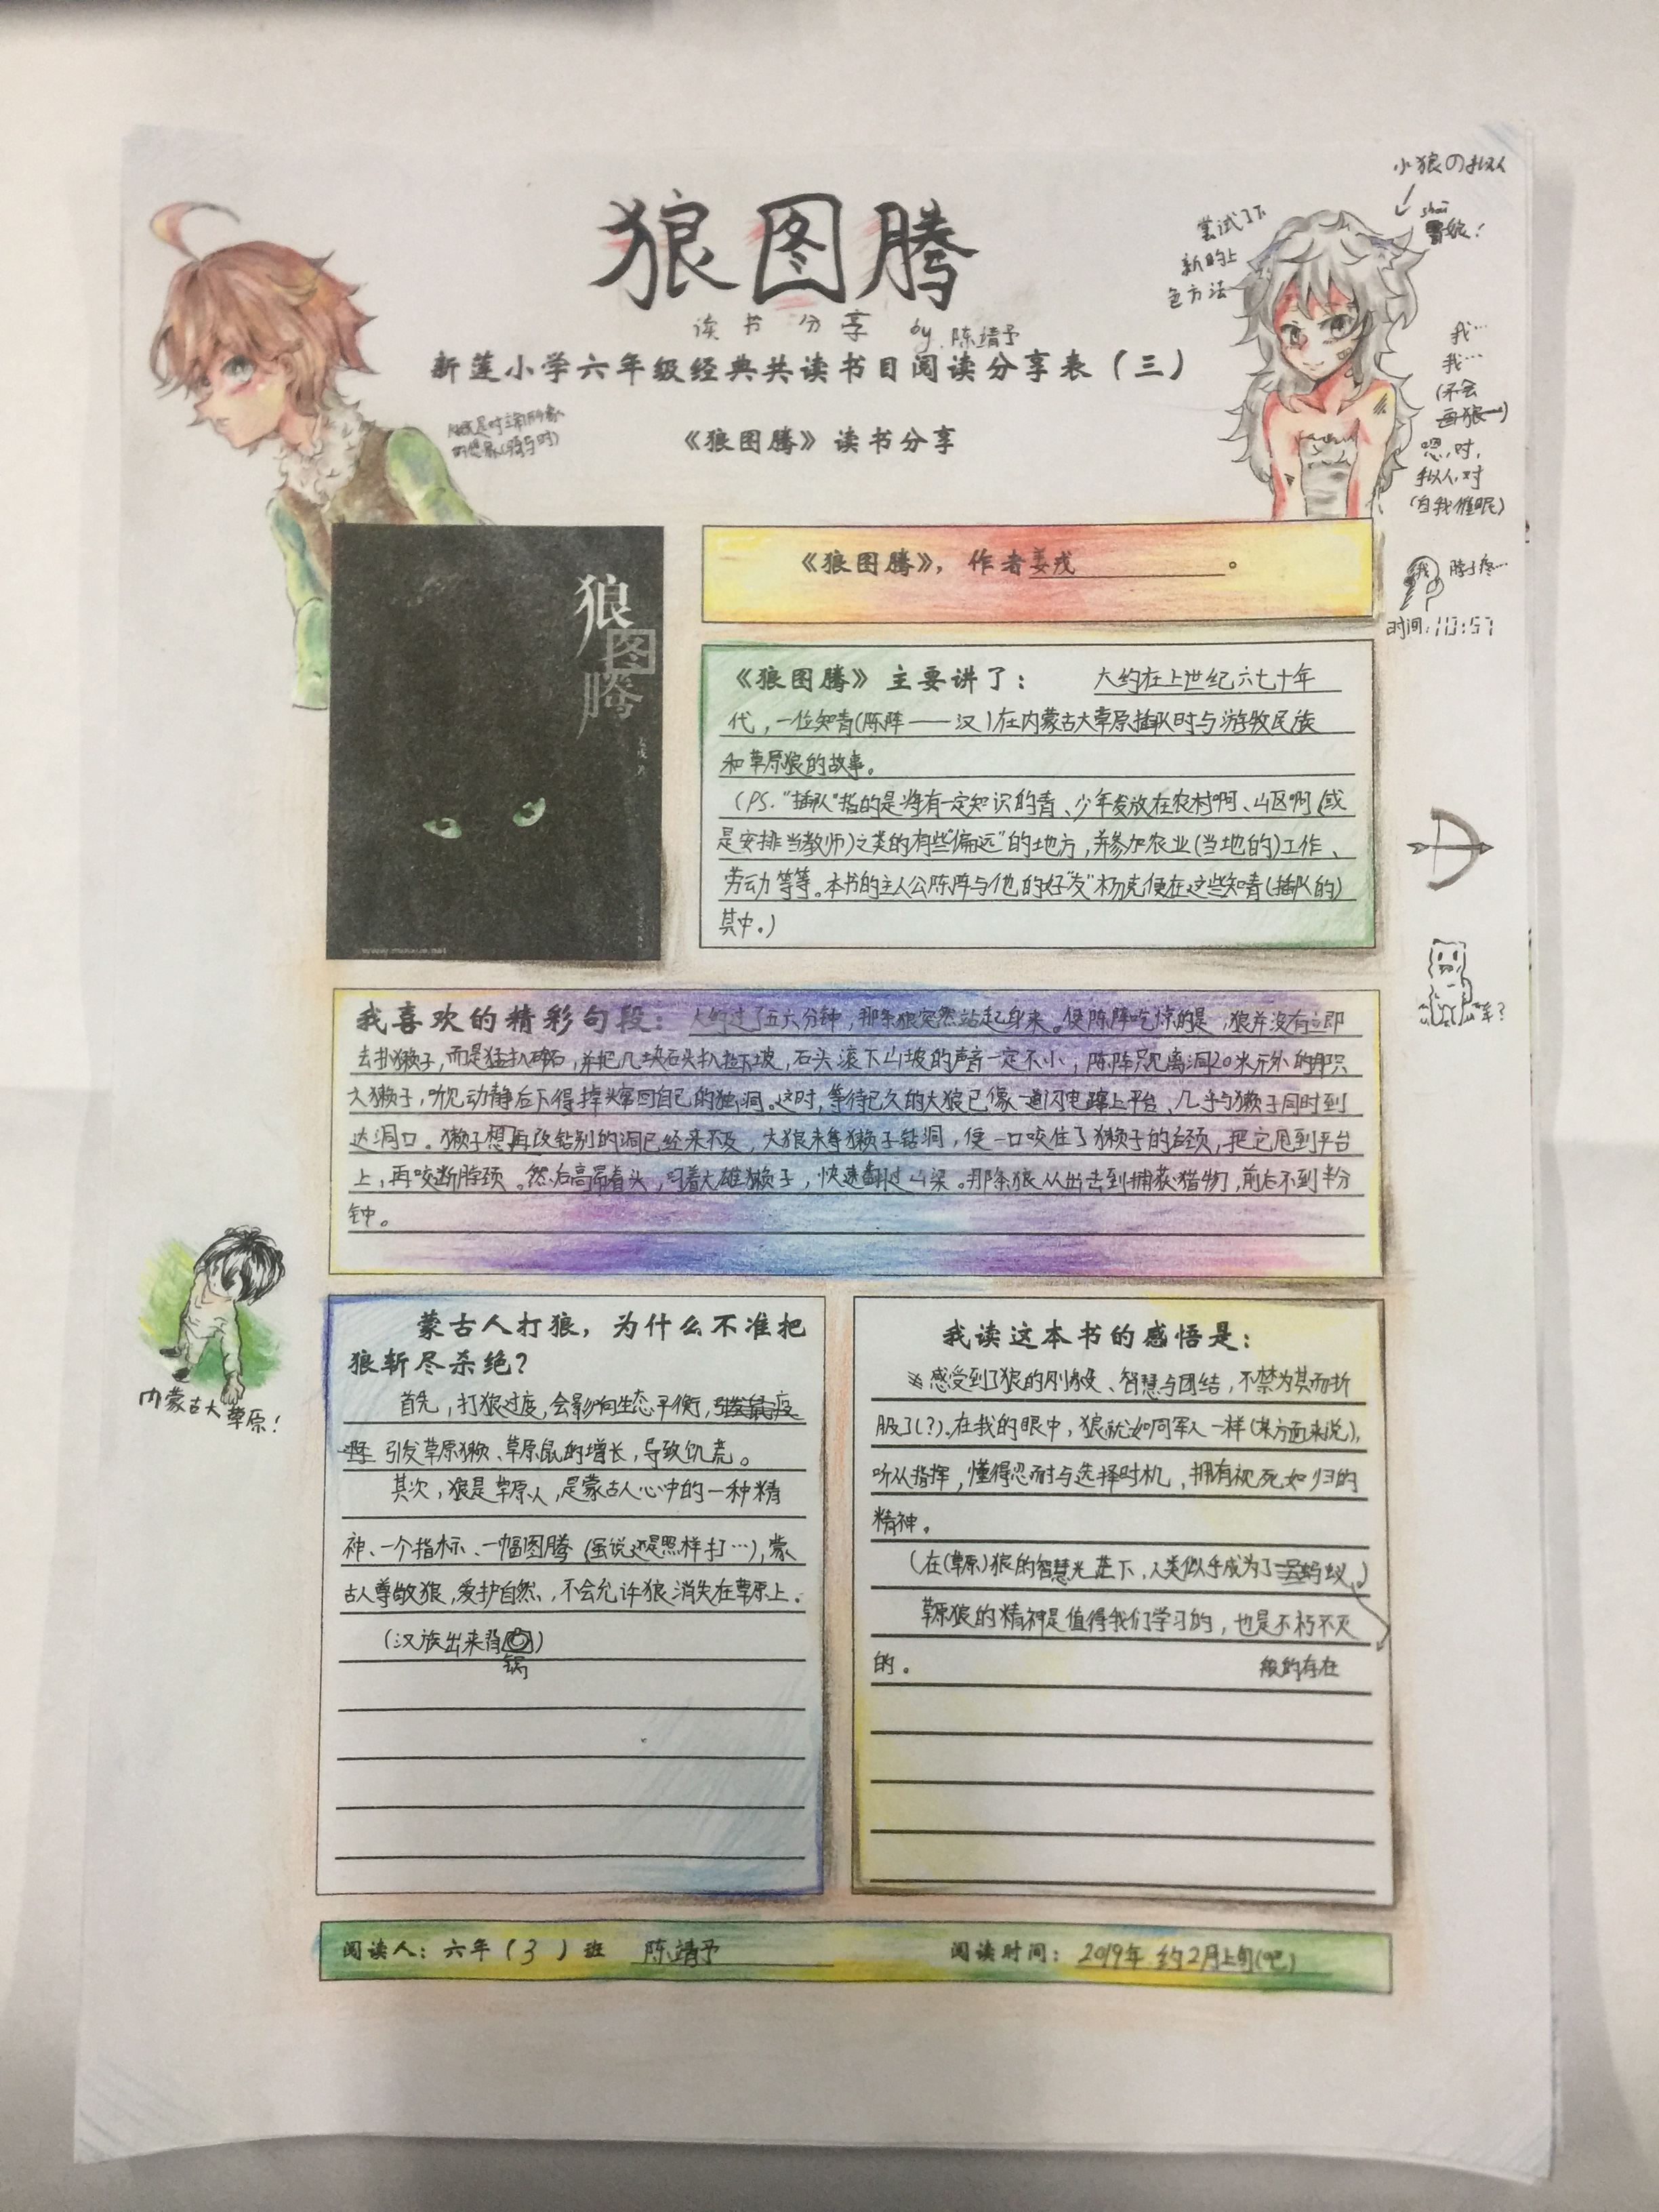 小狼の拟人
shai
娘！
尝试了下
新的上
色方法
狼图腾
读书分享 by.陈靖予
新莲小学六年级经典共读书目阅读分享表（三）
《狼图腾》读书分享
我…
我…
(不会
画狼)
嗯,对,
拟人,对
(自我催眠)
《狼图腾》，作者姜戎。
狼
图
腾
我 脖子疼…
时间:10:57
《狼图腾》主要讲了： 大约在上世纪六七十年
代，一位知青(陈阵——汉)在内蒙古大草原插队时与游牧民族
和草原狼的故事。
(PS."插队"指的是将有一定知识的青、少年发放在农村啊、山区啊(或
是安排当教师)之类的有些"偏远"的地方,并参加农业(当地的)工作、
劳动等等。本书的主人公陈阵与他的好"友"杨克便在这些知青(插队的)
其中。)
羊?
我喜欢的精彩句段：大约过了五六分钟,那条狼突然站起身来。使陈阵吃惊的是,狼并没有立即
去扑獭子,而是猛扒碎石,并把几块石头扒拉下坡,石头滚下山坡的声音一定不小,陈阵只见离洞20米开外的那只
大獭子,听见动静后下得掉头窜回自己的独洞。这时,等待已久的大狼已像一道闪电蹿上平台,几乎与獭子同时到
达洞口。獭子想再改钻别的洞已经来不及,大狼未等獭子钻洞,便一口咬住了獭子的后颈,把它甩到平台
上,再咬断脖颈。然后高昂着头,叼着大雄獭子,快速翻过山梁。那条狼从出击到捕获猎物,前后不到半分
钟。
内蒙古大草原！
蒙古人打狼，为什么不准把
狼斩尽杀绝？
首先,打狼过度,会影响生态平衡,引发鼠疫
引发草原獭、草原鼠的增长,导致饥荒。
其次,狼是草原人,是蒙古人心中的一种精
神、一个指标、一幅图腾(虽说还是照样打…),蒙
古人尊敬狼,爱护自然,不会允许狼消失在草原上.
(汉族出来背)
锅
我读这本书的感悟是：
※感受到了狼的刚毅、智慧与团结,不禁为其而折
服了(?).在我的眼中,狼就如同军人一样(某方面来说),
听从指挥,懂得忍耐与选择时机,拥有视死如归的
精神。
(在(草原)狼的智慧光芒下,人类似乎成为了蚂蚁)
草原狼的精神是值得我们学习的,也是不朽不灭
的。 般的存在
阅读人：六年（3）班 陈靖予 阅读时间：2019年 约2月上旬(吧)